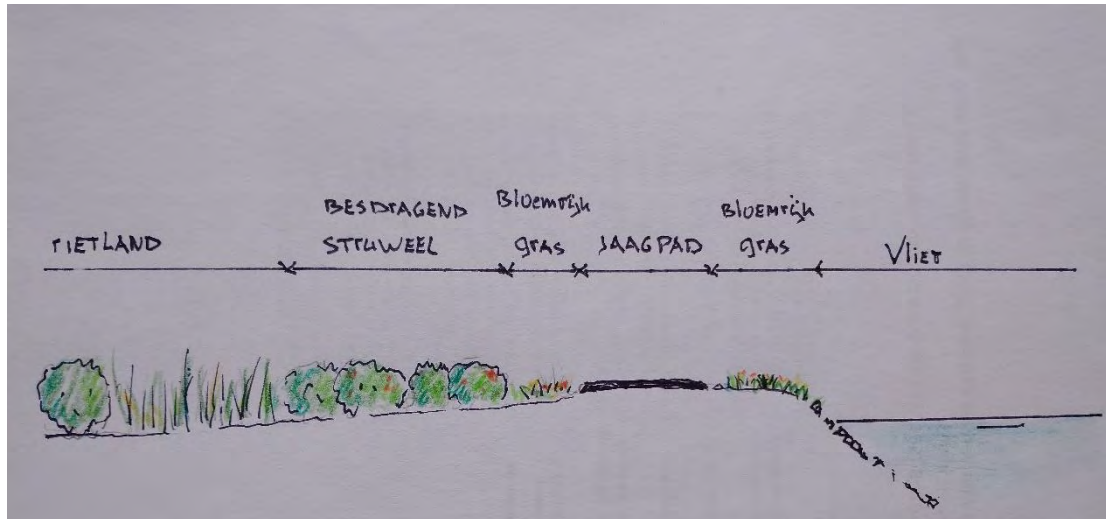 RIETLAND
BESDRAGEND
STRUWEEL
Bloemrijk
gras
JAAGPAD
Bloemrijk
gras
Vliet